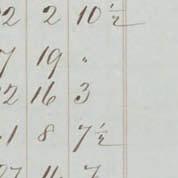 22 2 10 ½
7 19 "
22 16 3
1 8 7 ½
27 11 7